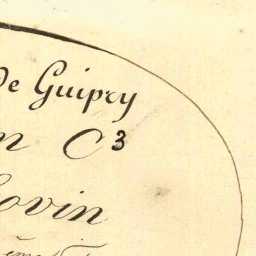 de Guipry
n C3
ovin